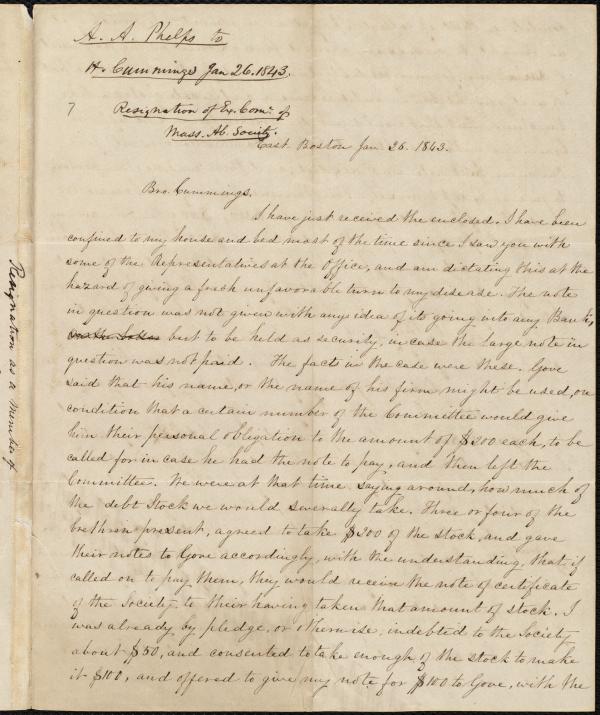 A. A. Phelps to
H. Cummings Jan 26. 1843.
7 Resignation of Ex. Com. of
Mass. Ab. Society.
East Boston Jan 26. 1843.
Bro. Cummings.
I have just received the enclosed. I have been
confined to my house and bed most of the time since I saw you with
some of the Representatives at the Office, and am dictating this at the
hazard of giving a fresh unfavorable turn to my disease. The note
in question was not given with any idea of its going into any Bank,
but to be held as security, in case the large note in
question was not paid. The facts in the case were these. Gove
said that his name, or the name of his firm might be used, on
condition that a certain number of the Committee would give
him their personal obligation to the amount of $200 each, to be
called for in case he had the note to pay, and then left the
Committee. We were at that time saying around, how much of
the debt Stock we would severally take. Three or four of the
brethren present, agreed to take $200 of the stock, and gave
their notes to Gove accordingly, with the understanding, that if
called on to pay them, they would receive the note of certificate
of the Society to their having taken that amount of stock. I
was already by pledge, or otherwise, indebted to the Society
about $50, and consented to take enough of the stock to make
it $100, and offered to give my note for $100 to Gove, with the
Resignation as a Member of